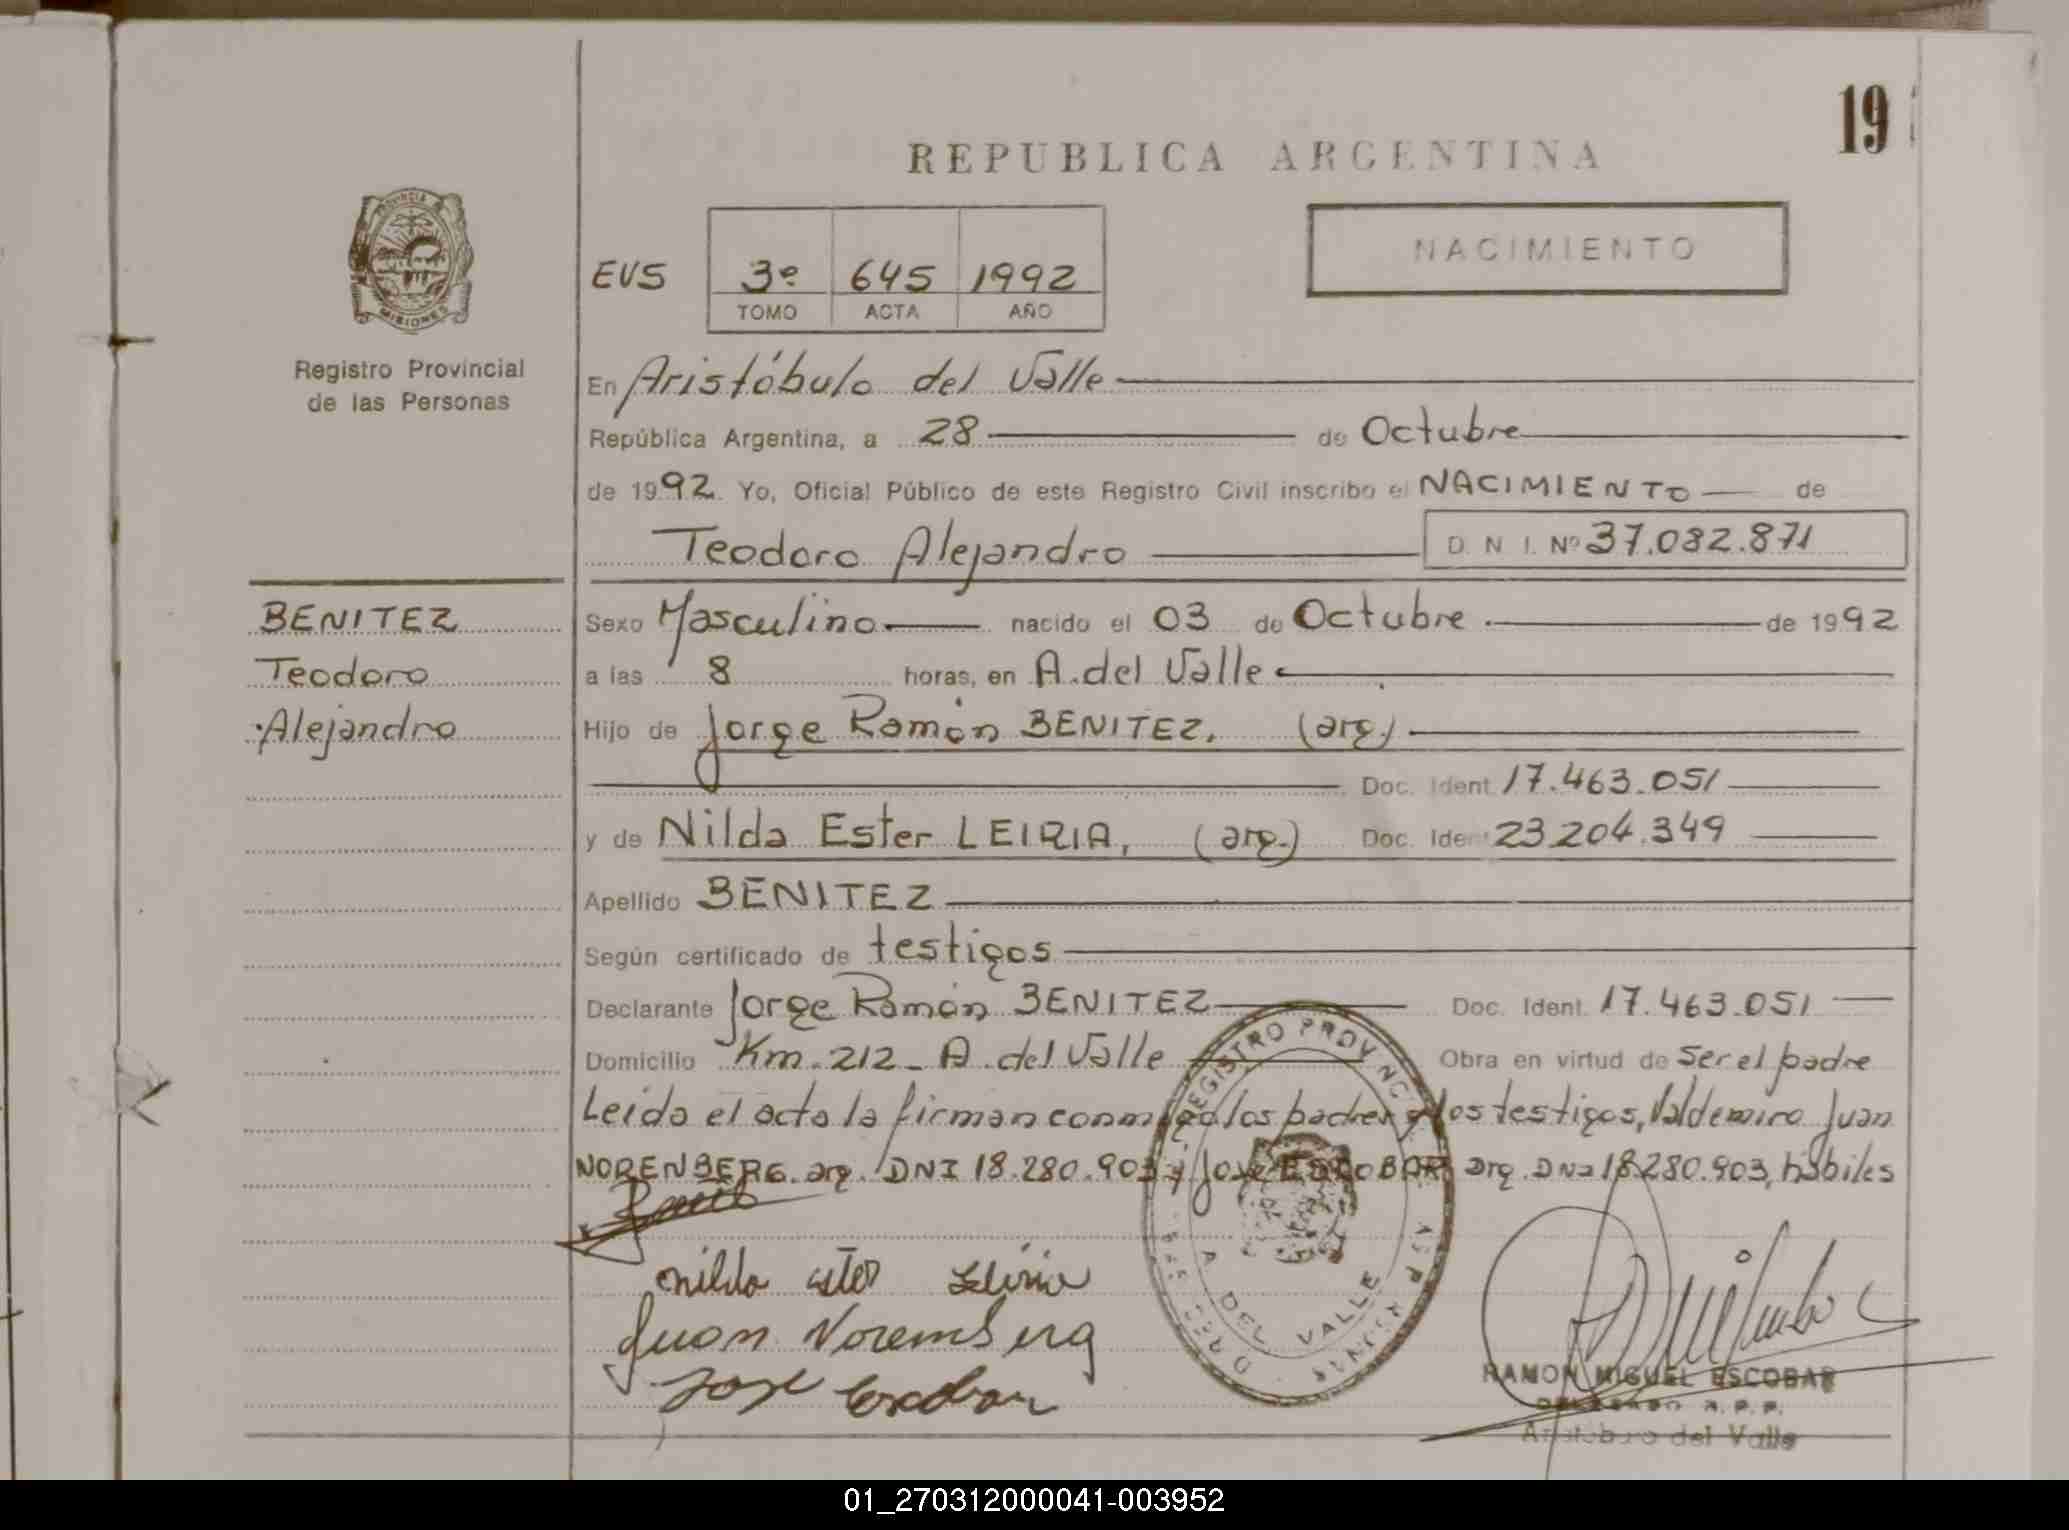 19
REPUBLICA ARGENTINA
PROVINCIA
MISIONES
Registro Provincial
de las Personas
EVS 3º 645 1992
TOMO ACTA AÑO
NACIMIENTO
En Aristóbulo del Valle
República Argentina, a 28 de Octubre
de 1992. Yo, Oficial Público de este Registro Civil inscribo el NACIMIENTO de
Teodoro Alejandro D. N. I. Nº 37.082.871
BENITEZ
Teodoro
Alejandro
Sexo Masculino nacido el 03 de Octubre de 1992
a las 8 horas, en A. del Valle
Hijo de Jorge Ramón BENITEZ, (arg.)
Doc. Ident. 17.463.051
y de Nilda Ester LEIRIA, (arg.) Doc. Ident 23.204.349
Apellido BENITEZ
Según certificado de testigos
Declarante Jorge Ramón BENITEZ Doc. Ident. 17.463.051
Domicilio Km. 212 - A. del Valle Obra en virtud de ser el padre
Leida el acta la firman conmigo los padres y los testigos, Valdemiro Juan
NORENBERG. arg. DNI 18.280.903 y José ESCOBAR arg. DNI 18.280.903, hábiles
REGISTRO PROVINC
A DEL VALLE
nilda ester Leiria
Juan Noremberg
Jose Escobar
RAMON MIGUEL ESCOBAR
DELEGADO R. P. P.
Aristobulo del Valle
01_270312000041-003952